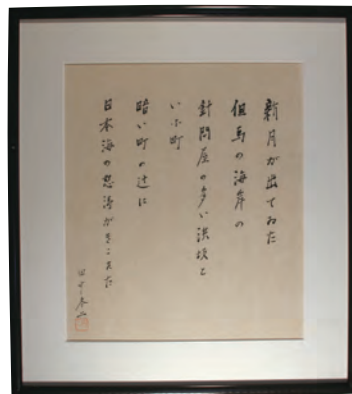 新月が出てゐた
但馬の海岸の
針問屋の多い浜坂と
いふ町
暗い町の辻に
日本海の怒濤がきこえた
田中冬二